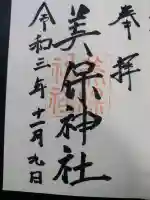 奉拝
美保神社
令和三年十一月九日